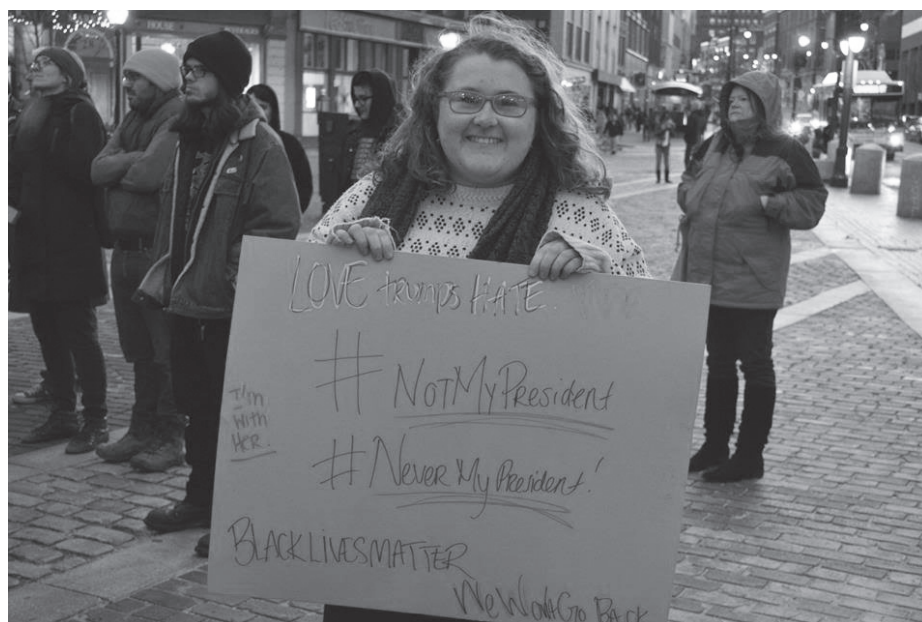 LOVE trumps HATE.
# NotMyPresident
I'm
With
HER.
# NeverMyPresident!
BLACKLIVESMATTER
WeWontGo Back